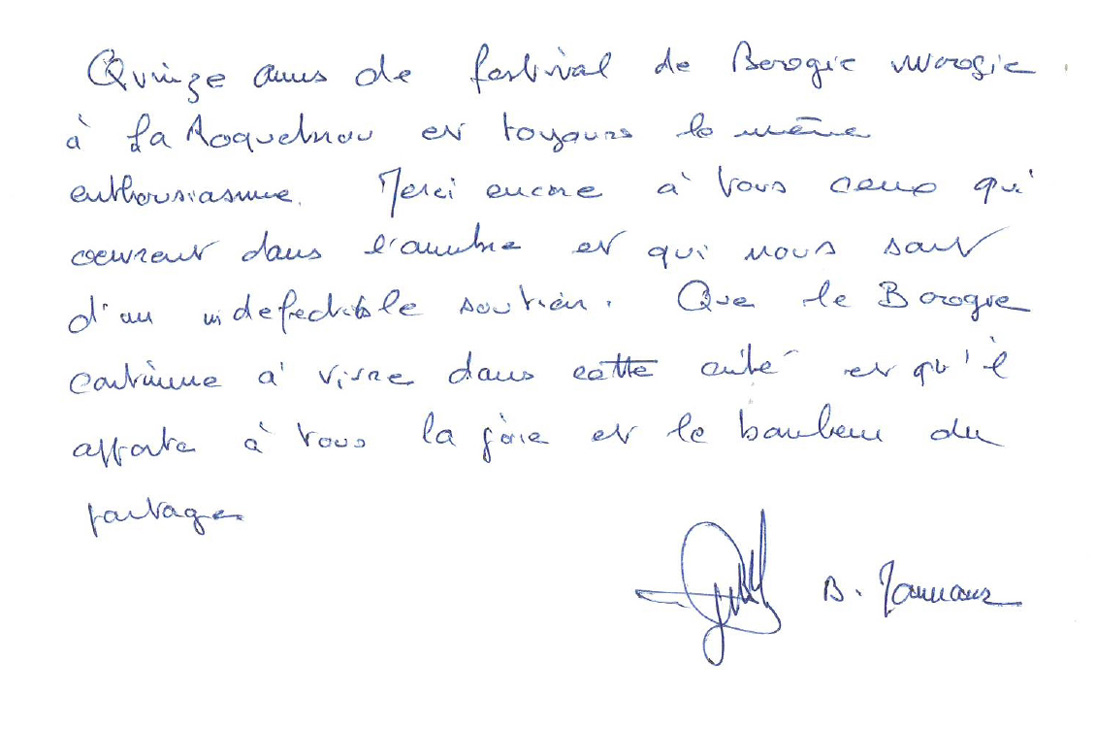 Quinze ans de festival de Boogie Woogie
à La Roquebrou et toujours le même
enthousiasme. Merci encore à tous ceux qui
oeuvrent dans l'ombre et qui nous sont
d'un indefectible soutien. Que le Boogie
continue à vivre dans cette cité et qu'il
apporte à tous la joie et le bonheur du
partage
B.